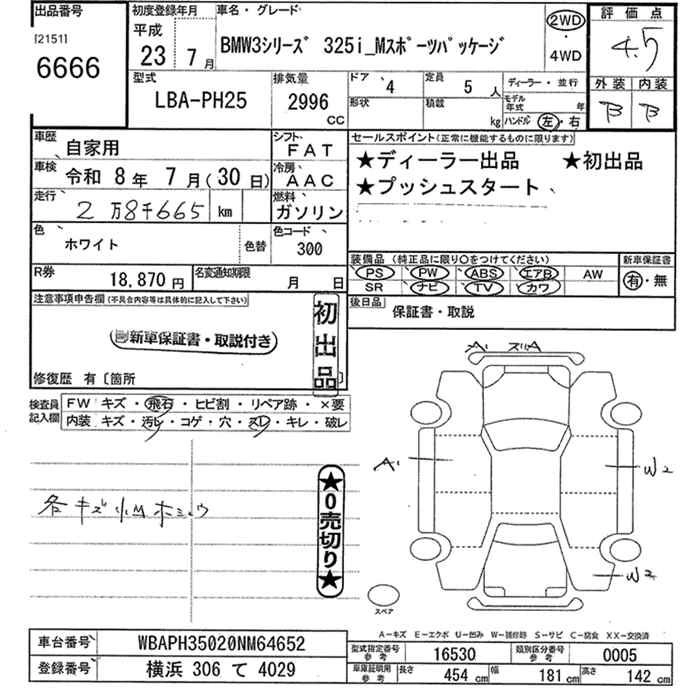 出品番号
[2151]
6666
初度登録年月
平成
23年 7月
車名・グレード
BMW3シリーズ 325i_Mスポーツパッケージ
2WD
・
4WD
評価点
4.5
外装 内装
B B
型式
LBA-PH25
排気量
2996
CC
ドア 4
形状
定員 5人
積載 kg
ディーラー・並行
モデル年式 年
ハンドル 左・右
車歴 自家用
シフト FAT
車検 令和 8年 7月(30日)
冷房 AAC
走行 2万8千665 km
燃料 ガソリン
色 ホワイト
色替
色コード 300
R券 18,870円
名変通知期限 月 日
セールスポイント(正常に機能するものに限ります)
★ディーラー出品 ★初出品
★プッシュスタート
装備品(純正品に限り〇をつけてください)
PS PW ABS エアB AW
SR ナビ TV カワ
新車保証書
有・無
後日品 保証書・取説
注意事項申告欄(不具合内容等は具体的に記入して下さい)
新車保証書・取説付き
初出品
修復歴 有〔箇所
検査員記入欄
FW キズ・飛石・ヒビ割・リペア跡・×要
内装 キズ・汚レ・コゲ・穴・スレ・キレ・破レ
各キズ小凹
★0売切り★
A1 スリA
A1
W2
W2
スペア
A-キズ E-エクボ U-凹み W-補修跡 S-サビ C-腐食 XX-交換済
車台番号 WBAPH35020NM64652
登録番号 横浜 306 て 4029
型式指定番号 参考 16530
類別区分番号 参考 0005
車庫証明用 参考 長さ 454 cm 幅 181 cm 高さ 142 cm